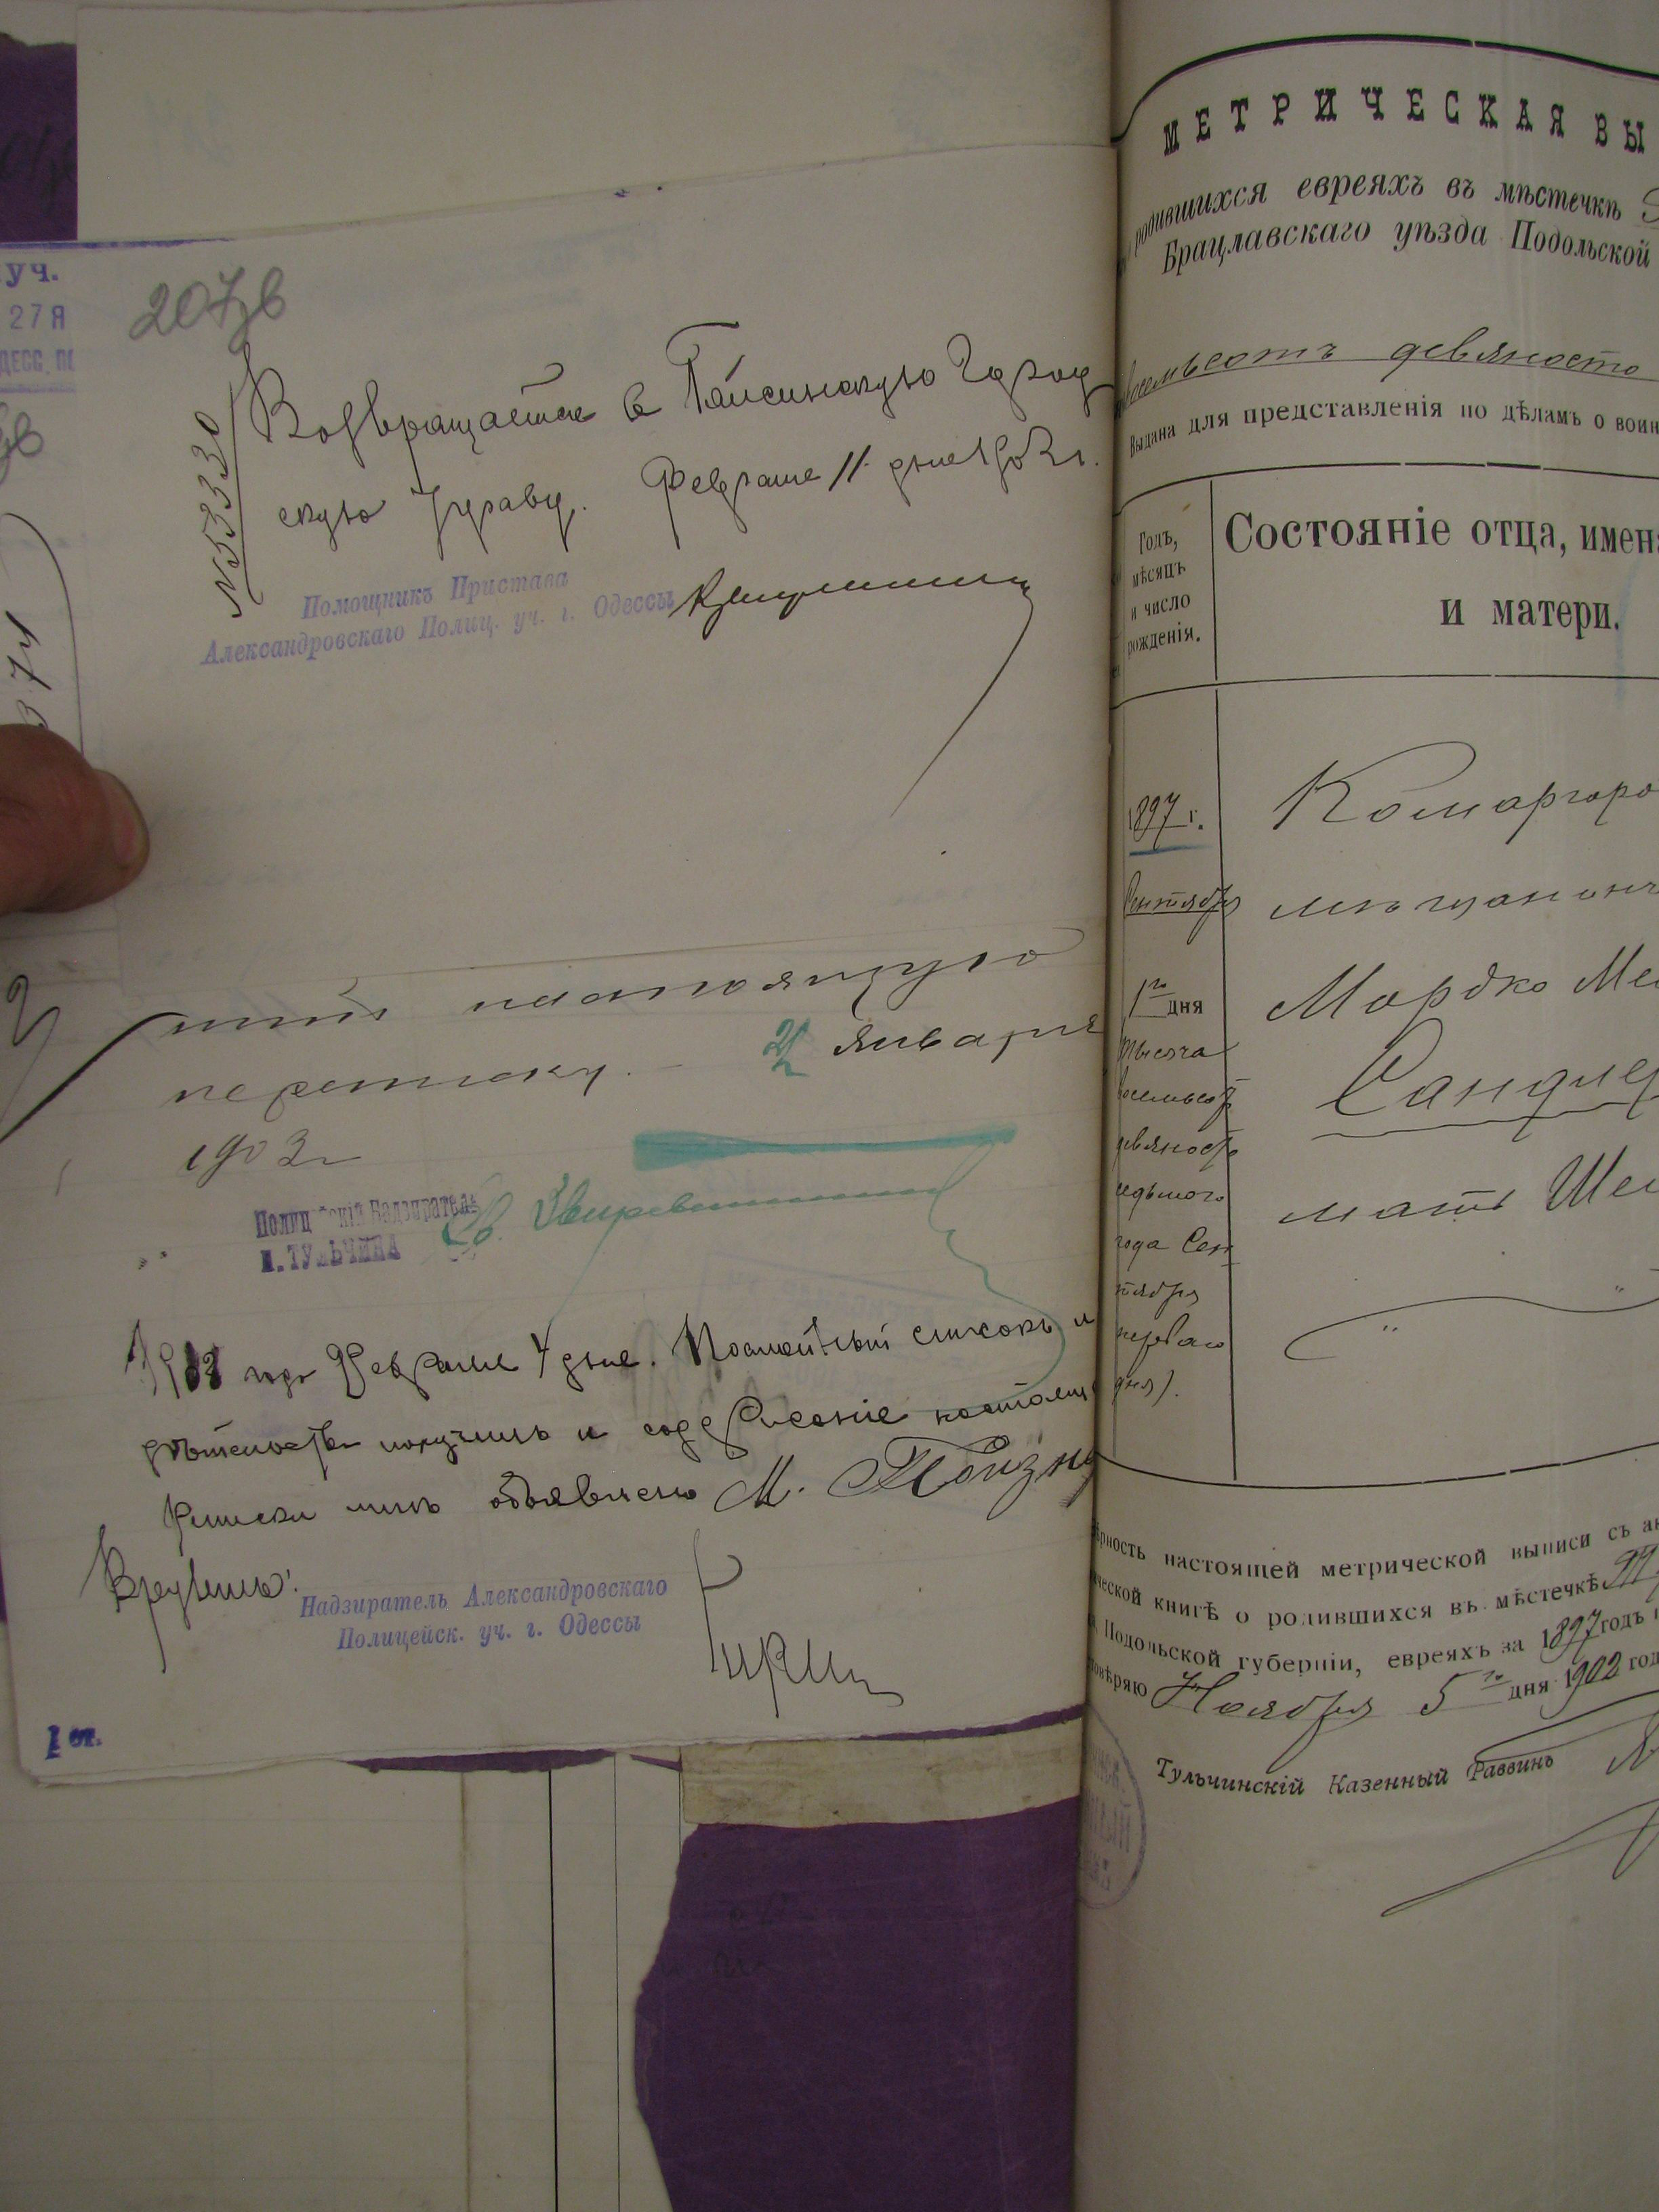 уч.
27 Я
207/в
№ 53330
Возвращается в Гайсинскую Город
скую Управу. Февраля 11 дня 1903 г.
Помощникъ Пристава
Александровскаго Полиц. уч. г. Одессы
настоящую
переписку. 21 января
1903 г
Полицейскій Надзиратель
М. ТУЛЬЧИНА
1903 года Февраля 4 дня. Посемейный списокъ и
получилъ и содержаніе настоящ
мнѣ объявлено М.
Вручилъ:
Надзиратель Александровскаго
Полицейск. уч. г. Одессы
1 ст.
МЕТРИЧЕСКАЯ ВЫ
родившихся евреяхъ въ мѣстечкѣ
Брацлавскаго уѣзда Подольской
восемьсотъ девяносто
Выдана для представленія по дѣламъ о воин
Годъ,
мѣсяцъ
и число
рожденія.
Состояніе отца, имена
и матери.
1897 г.
Сентября
1го дня
тысяча
восемьсот
девяносто
седьмого
года Сен
тября
перваго
дня).
Комаргоро
мѣщанинъ
Мордко Ме
Сандлер
мать Ше
вѣрность настоящей метрической выписи съ ак
ической книгѣ о родившихся въ мѣстечкѣ
Подольской губерніи, евреяхъ за 1897 годъ
овѣряю Ноября 5го дня 1902 год
Тульчинскій Казенный Раввинъ